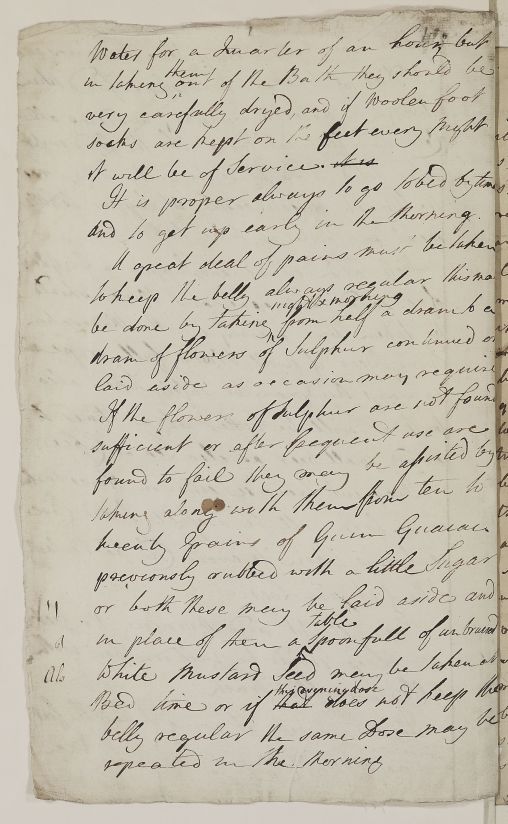 Water for a Quarter of an hour, but
in taking them out of the Bath they should be
very carefully dryed, and if Woolen foot
socks are kept on the feet every Night
it will be of Service. it is
It is proper always to go to bed by time
And to get up early in the Morning.
A great deal of pains must be taken
to keep the belly always regular this may
night & morning
be done by taking from half a dram to a
dram of flowers of Sulphur continued or
laid aside as occasion may require
If the flowers of Sulphur are not found
sufficient or after frequent use are
found to fail they may be assisted by
taking along with them from ten to
twenty grains of Gum Guaiac
previously rubbed with a little Sugar
or both these may be laid aside and
in place of them a Table Spoonfull of unbruised
White Mustard Seed may be taken at
the evening dose
Bed time or if that does not keep the
belly regular the same Dose may be
repeated in the Morning